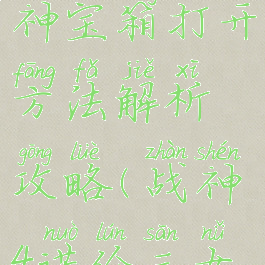 神宝箱打开
fāng fǎ jiě xī
方法解析
gōng lüè zhàn shén
攻略(战神
nuò lún sān nǚ
诺伦三女